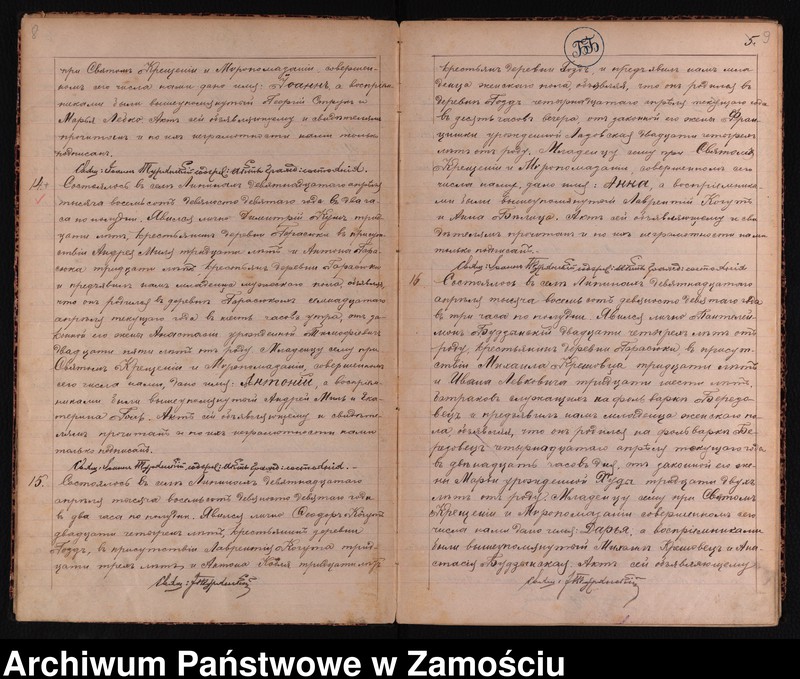 8
при Святомъ Крещеніи и Муропомазаніи, совершен-
номъ сего числа нами дано имя: Іоаннъ, а воспріем-
никами были вышеупомянутый Георгій и
Марья Ледко. Актъ сей объявляющему и свидѣтелямъ
прочитанъ и по ихъ неграмотности нами только
подписанъ.
14.
Состоялось въ селѣ Липинахъ девятнадцатаго апрѣля
тысяча восемьсотъ девяносто девятаго года въ два ча-
са по полудни. Явился лично Димитрій трид-
цати лѣтъ, крестьянинъ деревни Тарасюки въ присут-
ствіи Андрея Миля тридцати лѣтъ и Антона Тара-
сюка тридцати лѣтъ крестьянъ деревни Тарасюки
и предъявилъ намъ младенца мужскаго пола, объявляя,
что онъ родился въ деревнѣ Тарасюкахъ семнадцатаго
апрѣля текущаго года въ пять часовъ утра, отъ за-
конной его жены Анастасіи урожденной
двадцати пяти лѣтъ отъ роду. Младенцу сему при
Святомъ Крещеніи и Муропомазаніи, совершенномъ
сего числа нами, дано имя: Антоній, а воспріем-
никами были вышеупомянутый Андрей Миль и Ека-
терина Голь. Актъ сей объявляющему и свидѣте-
лямъ прочитанъ и по ихъ неграмотности нами
только подписанъ.
15.
Состоялось въ селѣ Липинахъ девятнадцатаго
апрѣля тысяча восемьсотъ девяносто девятаго года
въ два часа по полудни. Явился лично Ѳеодоръ Когутъ
двадцати четырехъ лѣтъ, крестьянинъ деревни
въ присутствіи Лаврентія Когута трид-
цати трехъ лѣтъ и Антона тридцати лѣтъ
5. 9
крестьянъ деревни и предъявилъ намъ мла-
денца женскаго пола, объявляя, что онъ родился въ
деревнѣ четырнадцатаго апрѣля текущаго года
въ десять часовъ вечера, отъ законной его жены Фран-
цишки урожденной двадцати четырехъ
лѣтъ отъ роду. Младенцу сему при Святомъ
Крещеніи и Муропомазаніи, совершенномъ сего
числа нами, дано имя: Анна, а воспріемника-
ми были вышеупомянутый Лаврентій Когутъ
и Анна Актъ сей объявляющему и сви-
дѣтелямъ прочитанъ и по ихъ неграмотности нами
только подписанъ.
16
Состоялось въ селѣ Липинахъ девятнадцатаго
апрѣля тысяча восемьсотъ девяносто девятаго года
въ три часа по полудни. Явился лично Пантелей-
монъ Буддзинскій двадцати четырехъ лѣтъ отъ
роду, крестьянинъ деревни Тарасюки, въ присут-
ствіи Михаила Крешовца тридцати лѣтъ
и Ивана Левковича тридцати шести лѣтъ,
батраковъ служащихъ на фольваркѣ Бередо-
вецъ и предъявилъ намъ младенца женскаго по-
ла, объявляя, что онъ родился на фольваркѣ Бе-
редовецъ четырнадцатаго апрѣля текущаго года
въ двѣнадцать часовъ дня, отъ законной его же-
ны Марьи урожденной Дуда тридцати двухъ
лѣтъ отъ роду. Младенцу сему при Святомъ
Крещеніи и Муропомазаніи совершенномъ сего
числа нами дано имя: Дарья, а воспріемниками
были вышеупомянутый Михаилъ Крешовецъ и Ана-
стасія Буддзинская. Актъ сей объявляющему
Archiwum Państwowe w Zamościu